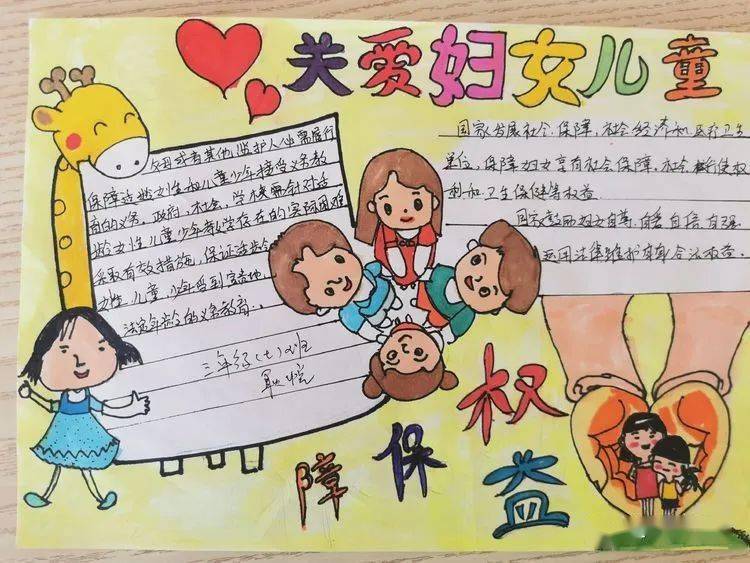 关爱妇女儿童
父母或者其他监护人必需履行
保障适龄女性和儿童少年接受义务教
育的义务。政府、社会、学校需针对适
龄女性儿童少年就学存在的实际困难
采取有效措施,保证适龄
女性儿童、少年受到完
法定年龄的义务教育。
三年级(七)班
国家发展社会保障,社会经济和医疗卫生
单位,保障妇女享有社会保障,社会
利和卫生保健等权益
国家鼓励妇女自尊、自信、自强
运用法律维护自身合法权益。
障保权益